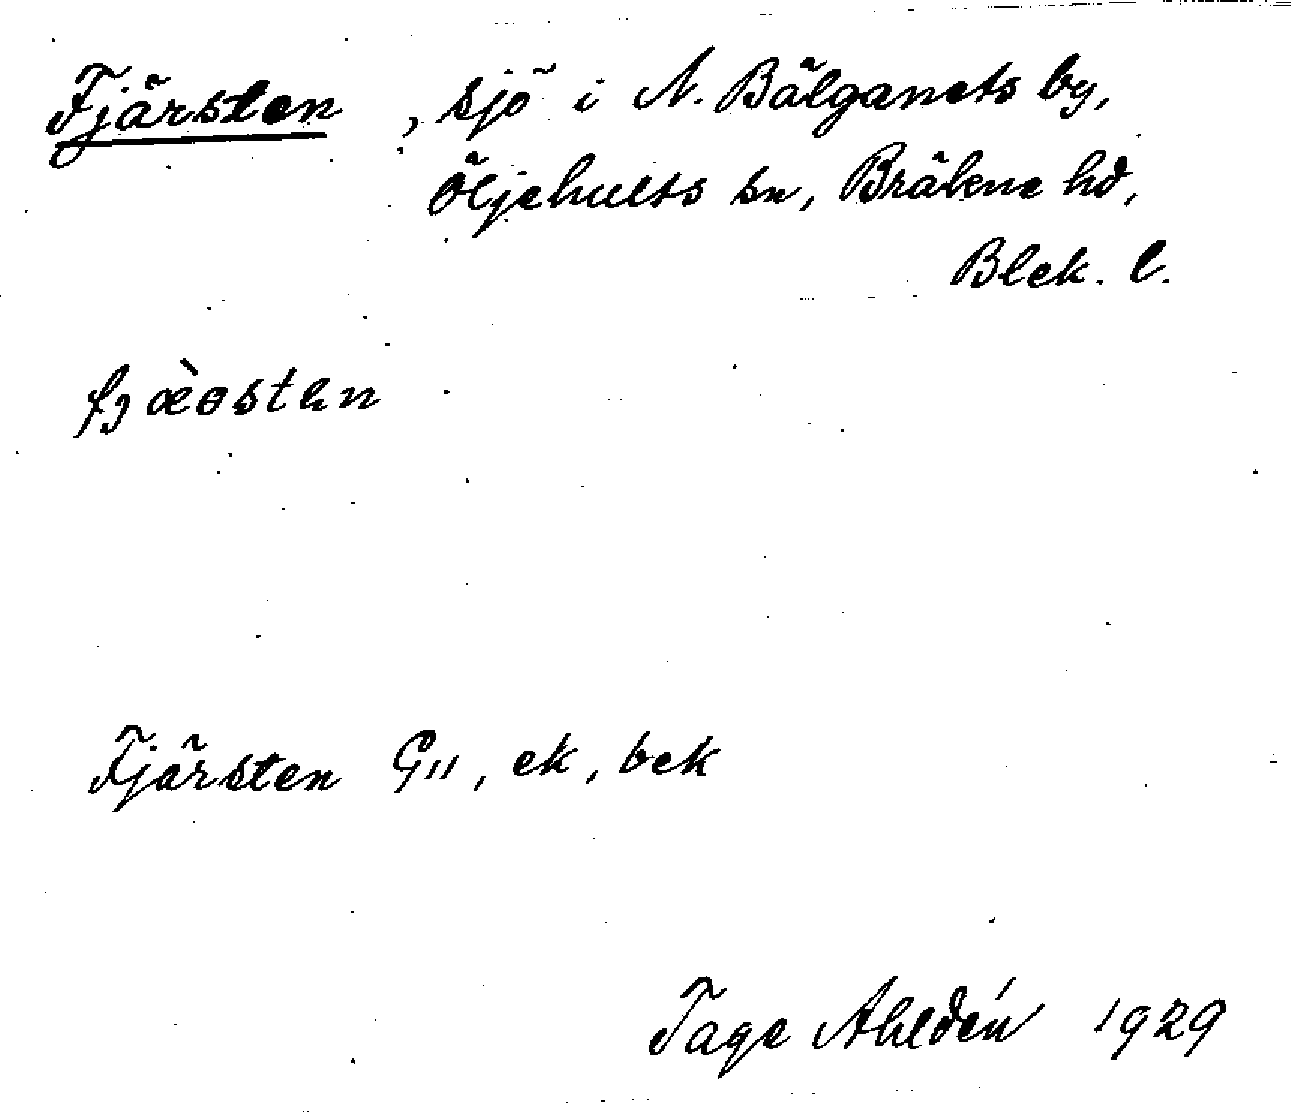 Fjärsten, sjö i N. Bälganets by,
Öljehults sn, Bräkne hd,
Blek. l.
fjæ̀östɛn
Fjärsten G11, ek, bek
Tage Ahldén 1929